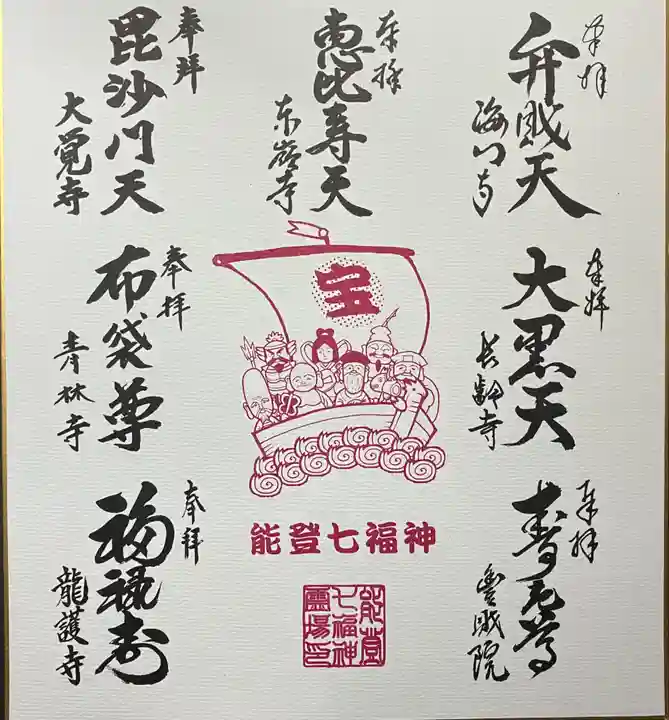 奉拝
弁財天
海門寺
奉拝
恵比寿天
東嶺寺
奉拝
毘沙門天
大覚寺
奉拝
大黒天
長齢寺
宝
奉拝
布袋尊
青林寺
奉拝
寿老尊
豊財院
奉拝
福禄寿
龍護寺
能登七福神
能登
七福神
霊場印